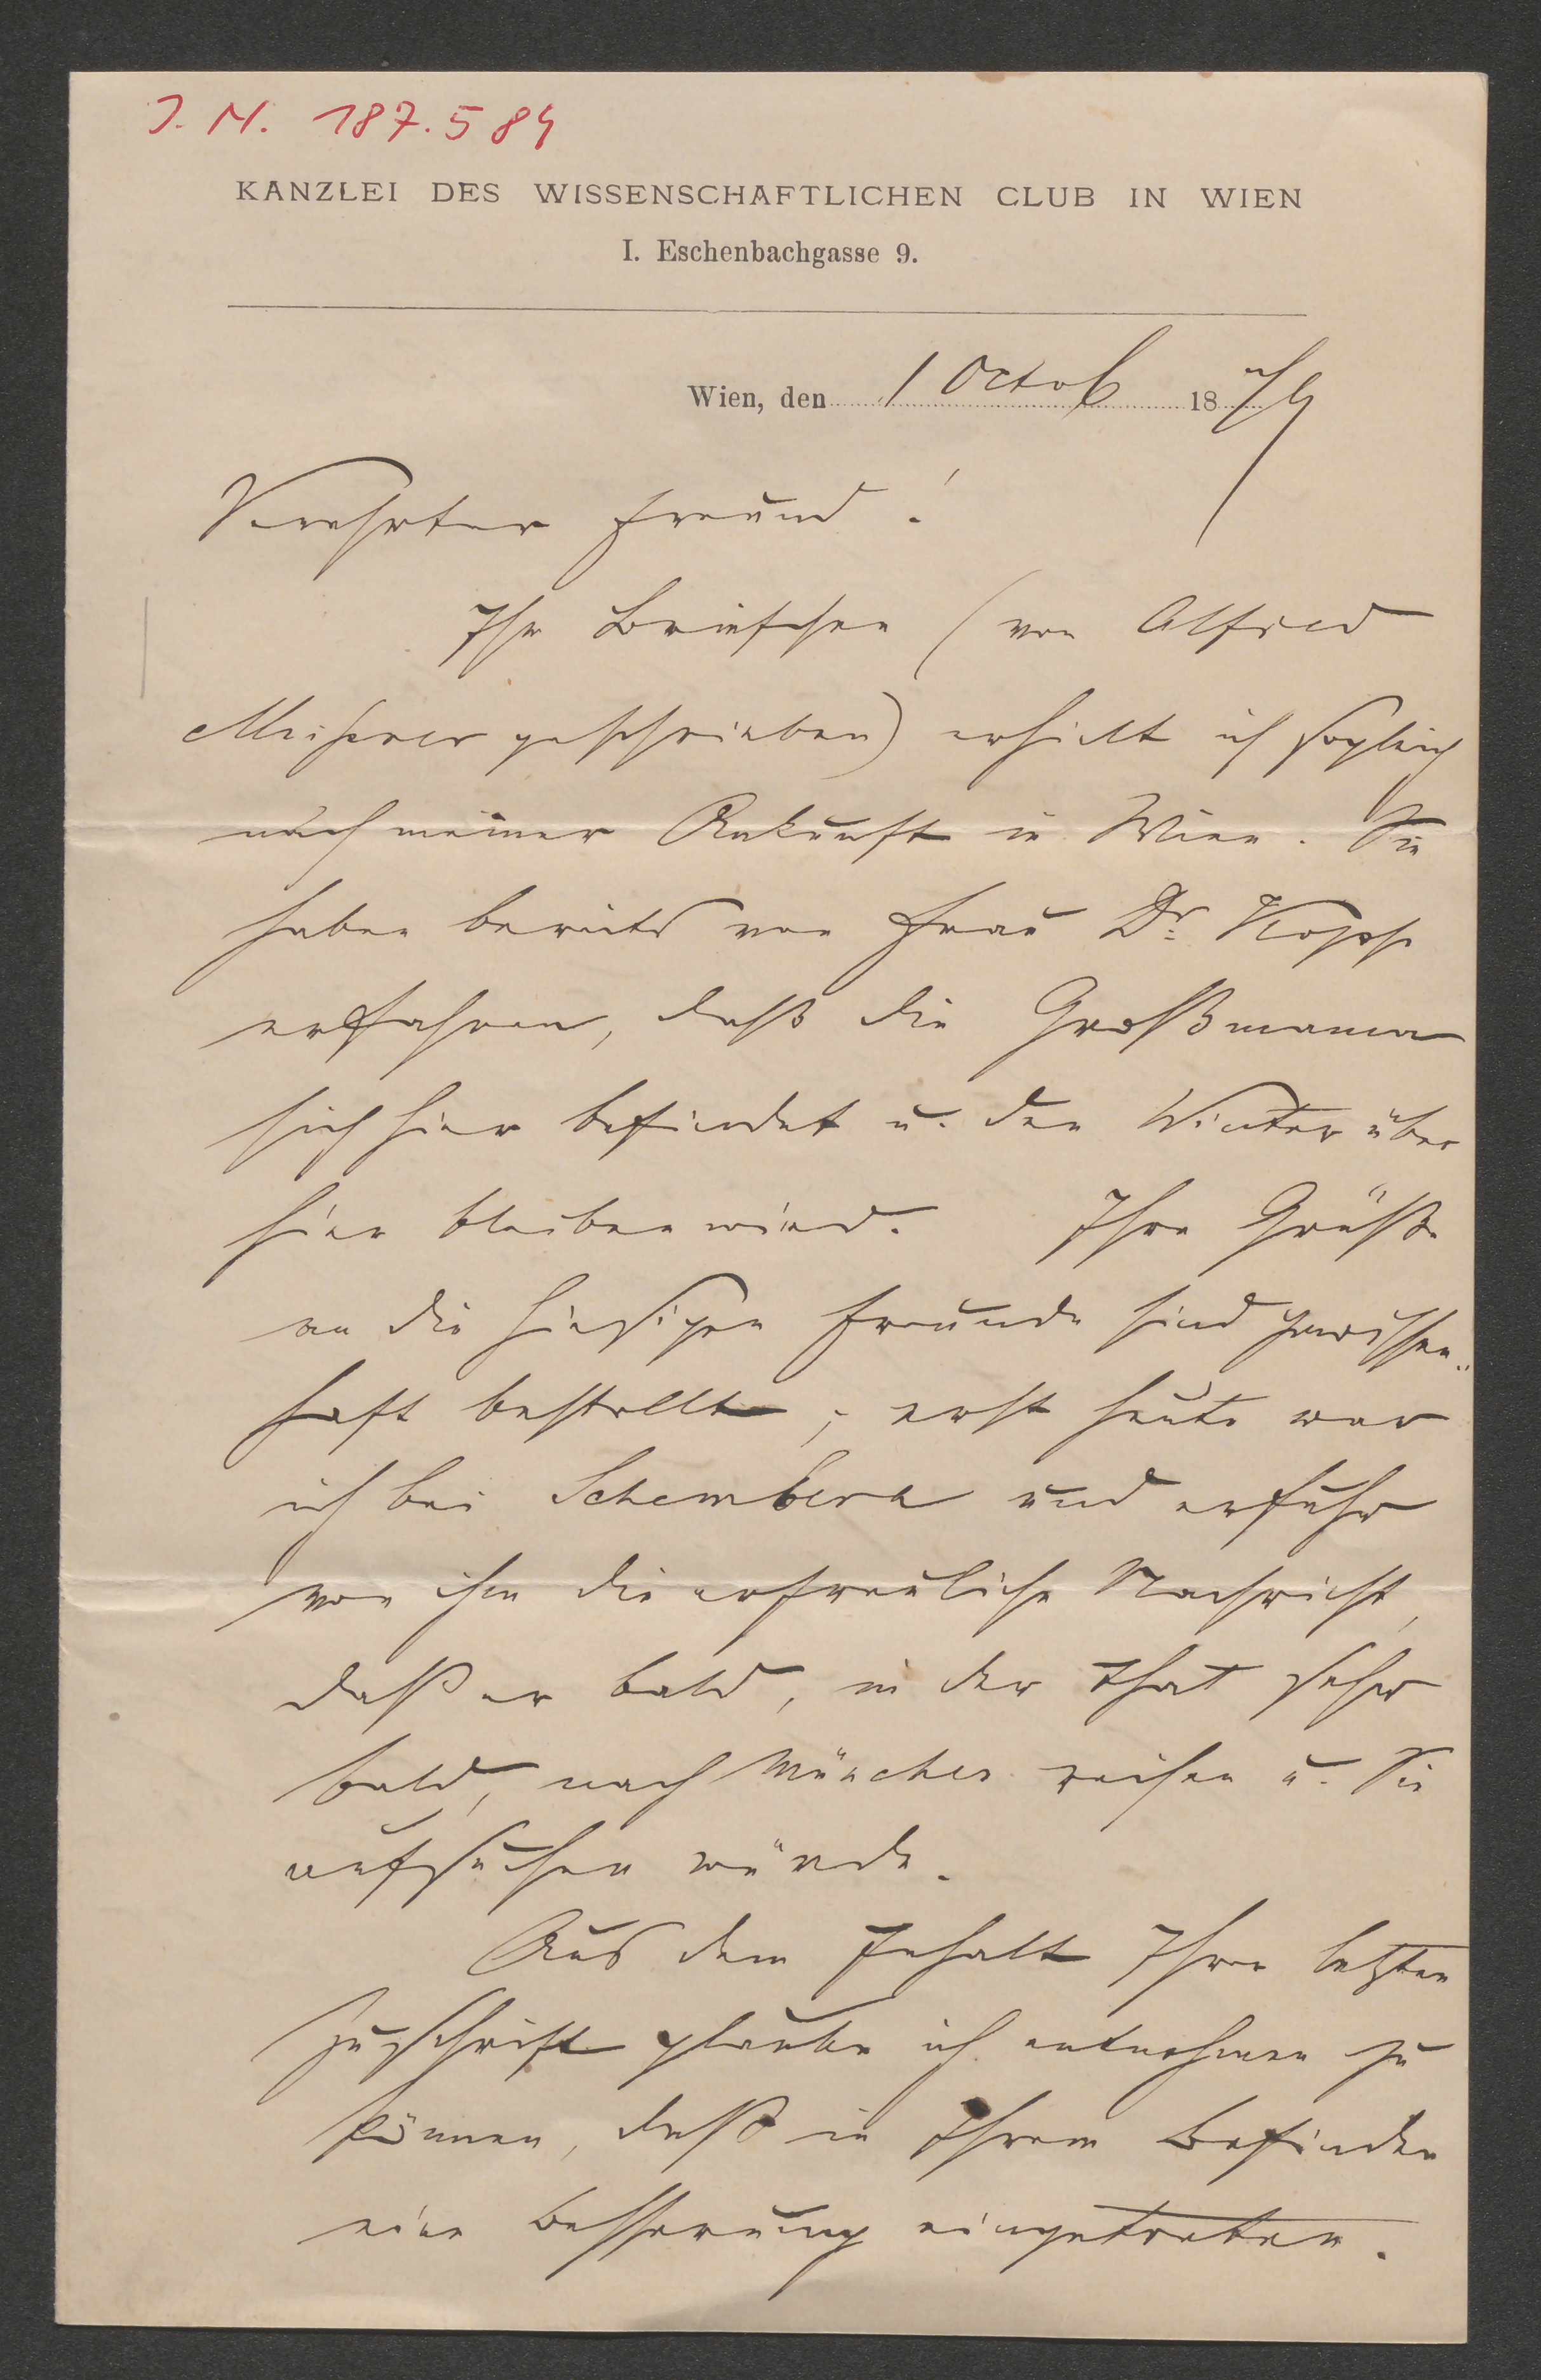 J. N. 187.584
KANZLEI DES WISSENSCHAFTLICHEN CLUB IN WIEN
I. Eschenbachgasse 9.
Wien, den 1 Octob 1879
Verehrter Freund!
Ihr Briefchen (von Alfred
Meißner geschrieben) erhielt ich sogleich
nach meiner Ankunft in Wien. Sie
haben bereits von Frau Dr. Kopp
erfahren, daß die Großmama
sich hier befindet u. den Winter über
hier bleiben wird. Ihre Grüße
an die hiesigen Freunde sind gewissen-
haft bestellt; erst heute war
ich bei Schembera und erfuhr
von ihm die erfreuliche Nachricht,
daß er bald, in der That sehr
bald, nach München reisen u. Sie
aufsuchen würde.
Aus dem Inhalt Ihrer letzten
Zuschrift glaube ich entnehmen zu
können, daß in Ihrem Befinden
eine Besserung eingetreten.